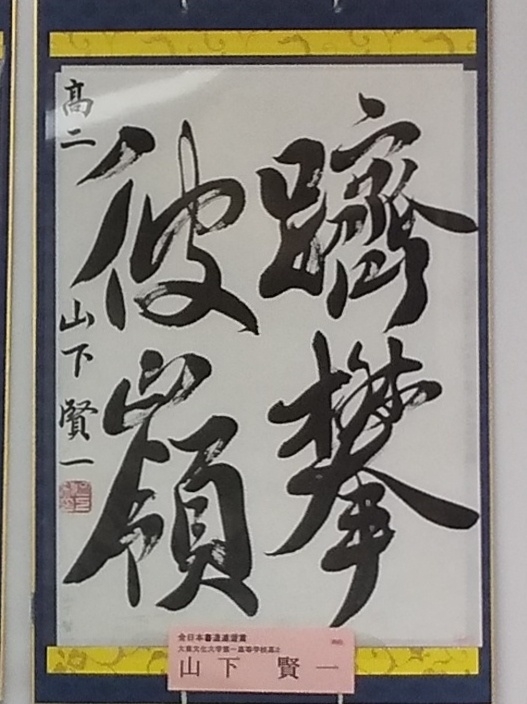 躋攀
彼嶺
高二 山下賢一
全日本書道連盟賞
大東文化大学第一高等学校高2
山下 賢一